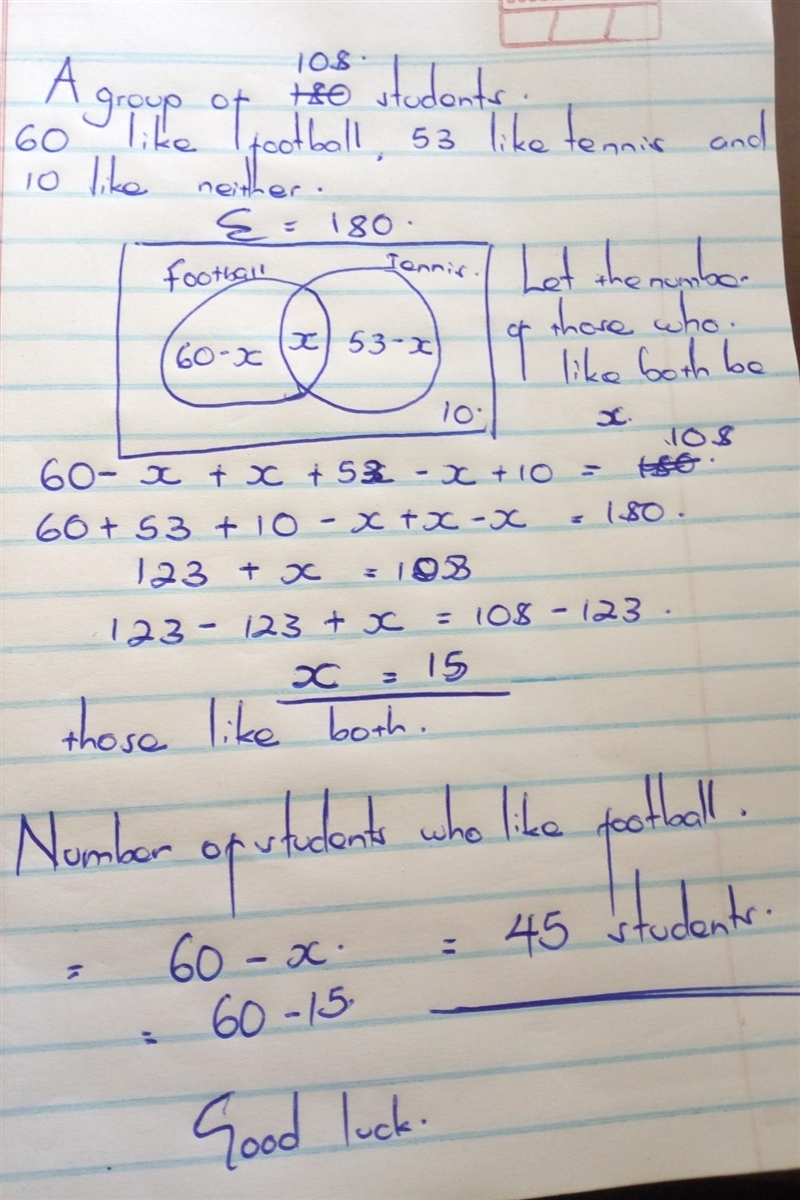 108.
A group of 180 students.
60 like football, 53 like tennis and
10 like neither.
Ɛ = 180.
football Tennis.
60-x x 53-x
10.
Let the number
of those who.
like both be
x.
108
60- x + x + 53 - x + 10 = 180.
60 + 53 + 10 - x + x - x = 180.
123 + x = 108
123 - 123 + x = 108 - 123.
x = 15
those like both.
Number of students who like football.
= 60 - x. = 45 students.
= 60 - 15.
Good luck.